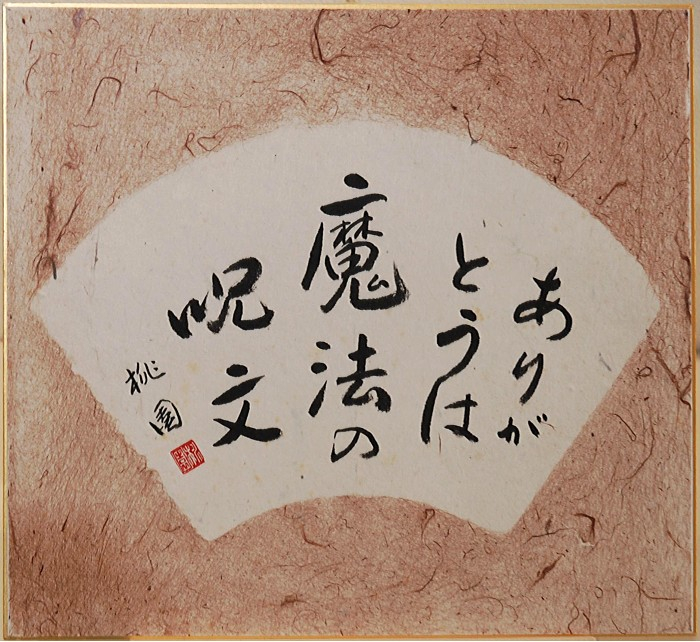 ありが
とうは
魔法の
呪文
桃園